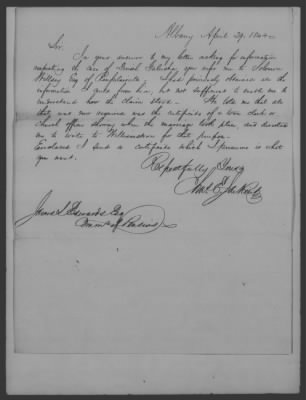 Albany April 29. 184
Sir.
In your answer to my letter asking for information
respecting the case of you refer me to Solomon
Esq of I had previously obtained all the
information I could from him, but not sufficient to enable me to
understand how the claim stood. He told me that all
that was now required was the certificate of a town clerk or
church officer showing when the marriage took place, and directed
me to write to Williamstown for that purpose.
Enclosed I send a certificate which I presume is what
you want.
Respectfully Yours
James L. Edwards Esq
Comr of Pensions